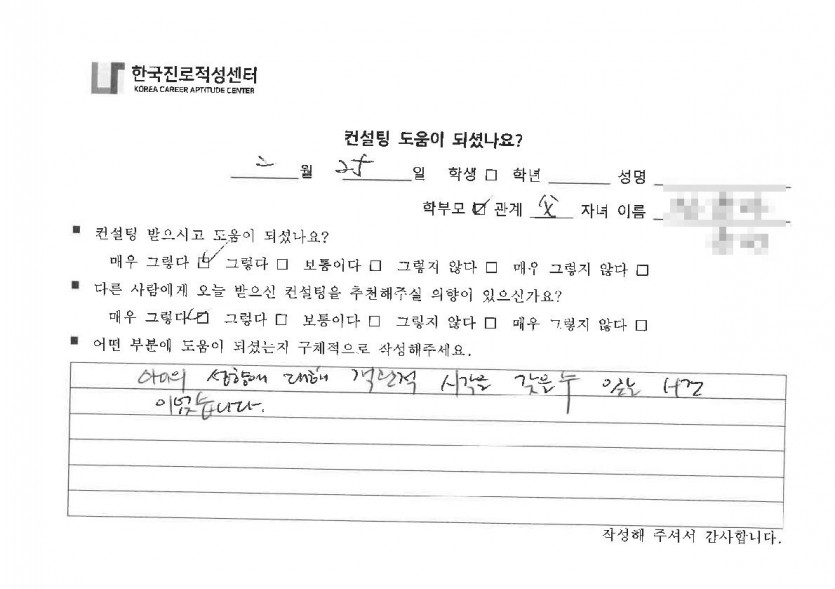 한국진로적성센터
KOREA CAREER APTITUDE CENTER
컨설팅 도움이 되셨나요?
二 월 25 일 학생 □ 학년 성명
학부모 ☑ 관계 父 자녀 이름
■ 컨설팅 받으시고 도움이 되셨나요?
매우 그렇다 ☑ 그렇다 □ 보통이다 □ 그렇지 않다 □ 매우 그렇지 않다 □
■ 다른 사람에게 오늘 받으신 컨설팅을 추천해주실 의향이 있으신가요?
매우 그렇다 ☑ 그렇다 □ 보통이다 □ 그렇지 않다 □ 매우 그렇지 않다 □
■ 어떤 부분에 도움이 되셨는지 구체적으로 작성해주세요.
아이의 성향에 대해 객관적 시각을 갖을 수 있는 시간
이었습니다.
작성해 주셔서 감사합니다.